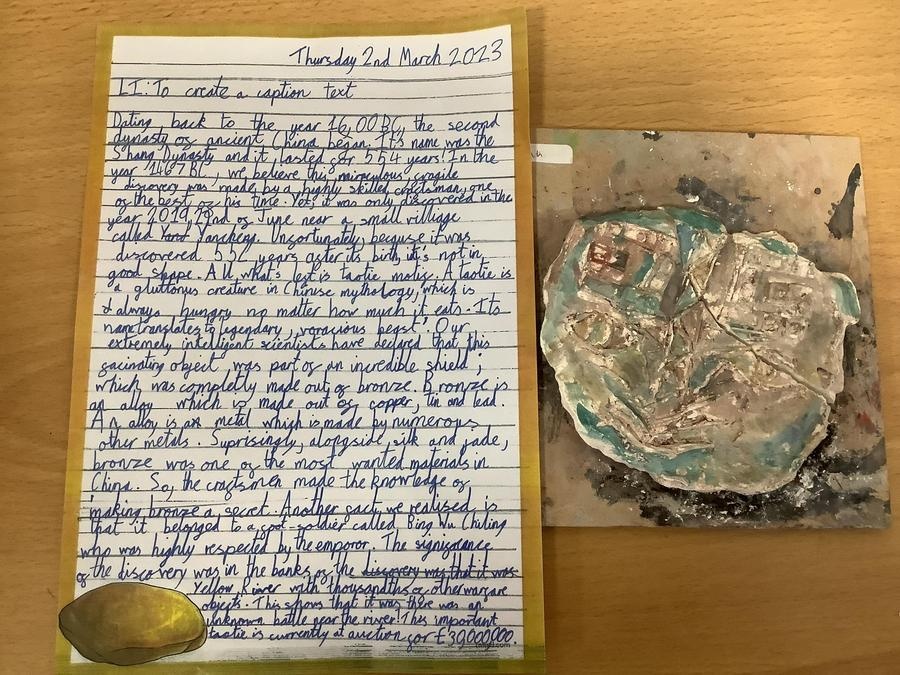 Thursday 2nd March 2023
LI: To create a caption text
Dating back to the year 16,00BC, the second
dynasty of ancient China began. It's name was the
Shang Dynasty and it lasted for 554 years! In the
year 1467BC, we believe this miraculous, fragile
discovery was made by a highly skilled craftsman, one
of the best of his time. Yet, it was only discovered in the
year 2019, 22nd of June near a small villiage
called Yancheng. Unfortunately, because it was
discovered 552 years after its birth, it's not in
good shape. All what's left is taotie motif. A taotie is
a gluttonus creature in Chinese mythology, which is
always hungry no matter how much it eats. Its
name translates to legendary, voracious beast. Our
extremely intelligent scientists have declared that this
facinating object, was part of an incredible shield;
which was completly made out of bronze. Bronze is
an alloy which is made out of copper, tin and lead.
An alloy is a metal which is made by numerous
other metals. Suprisingly, alongside silk and jade,
bronze was one of the most wanted materials in
China. So, the craftsmen made the knowledge of
making bronze a secret. Another fact, we realised, is
that it belonged to a foot-soldier called Bing Wu Chiling
who was highly respected by the emporor. The significance
of the discovery was in the banks of the discovery was that it was
Yellow River with thousandths of other warfare
objects. This shows that it was there was an
unknown battle near the river! This important
taotie is currently at auction for £39000000.